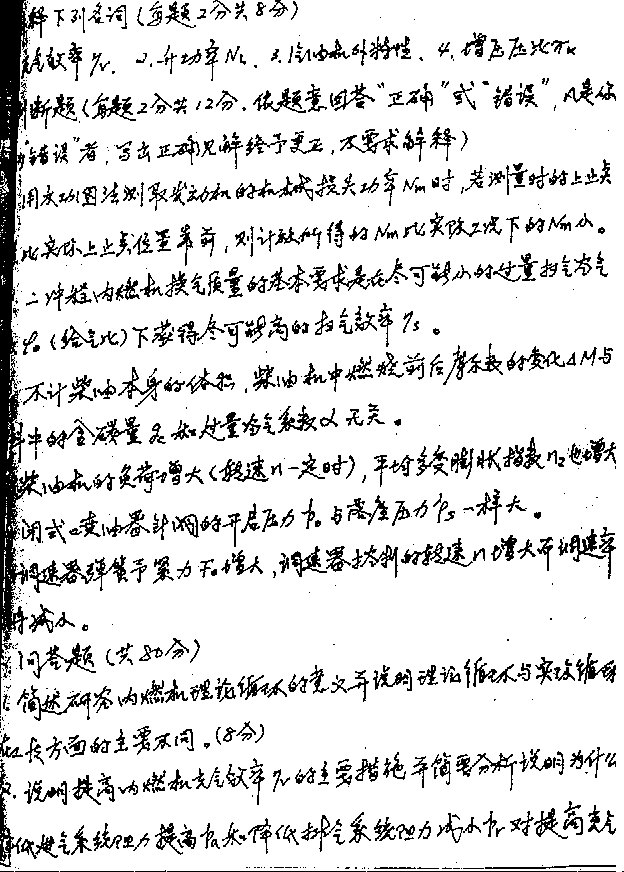 释下列名词(每题2分共8分)
气效率ηv、2.升功率Nl、3.汽油机外特性、4.增压压比πk
断题(每题2分共12分。依题意回答“正确”或“错误”,凡是你
“错误”者,写出正确见解给予更正,不要求解释)
用示功图法测取发动机的机械损失功率Nm时,若测量时的上止点
比实际上止点位置靠前,则计算所得的Nm比实际工况下的Nm小。
二冲程内燃机换气质量的基本要求是在尽可能小的过量扫气空气
φ₀(给气比)下获得尽可能高的扫气效率ηs。
不计柴油本身的体积,柴油机中燃烧前后摩尔数的变化ΔM与
中的含碳量
和过量空气系数α无关。
柴油机的负荷增大(转速n一定时),平均多变膨胀指数n₂也增大
闭式喷油器针阀的开启压力P₀与落座压力Ps一样大。
调速器弹簧予紧力F₀增大,调速器控制的转速n增大而调速率
将减小。
问答题(共80分)
简述研究内燃机理论循环的意义并说明理论循环与实际循环
在工质方面的主要不同。(8分)
2.说明提高内燃机充气效率ηv的主要措施并简要分析说明为什么
降低进气系统阻力提高Pa和降低排气系统阻力减小Pr对提高充气